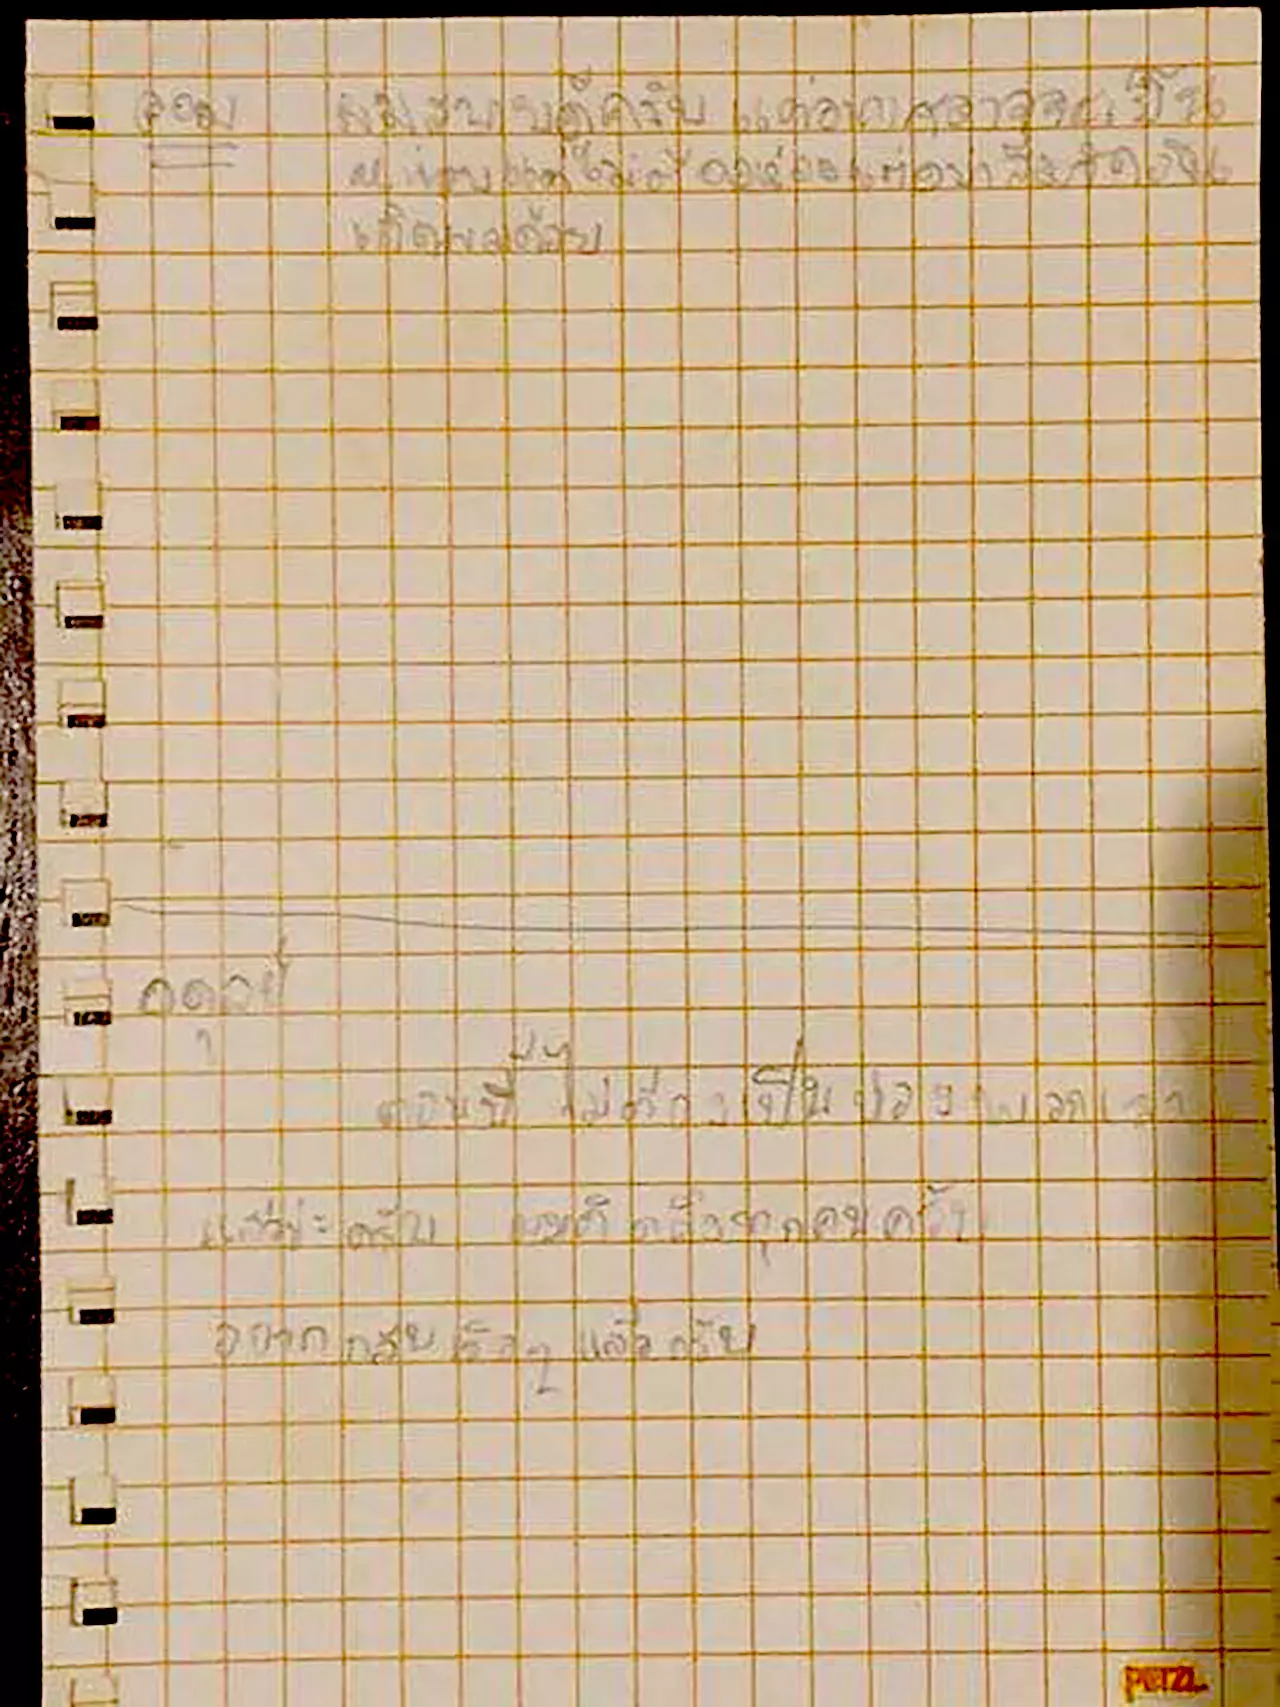 จอม ผมสบายดีครับ แต่อากาศอาจจะเย็น
แต่ไม่ต้องห่วง
เกิดผลด้วย
อดุลย์
ตอนนี้ไม่ต้องเป็นห่วงพวกเรา
แล้วนะครับ คิดถึงทุกคนครับ
อยากกลับเร็วๆ แล้วครับ
PETZL